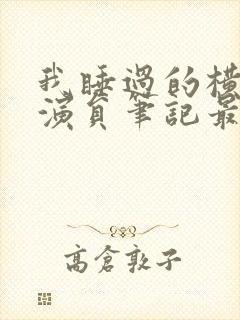 我睡過的橫
演員筆記最
高倉敦子